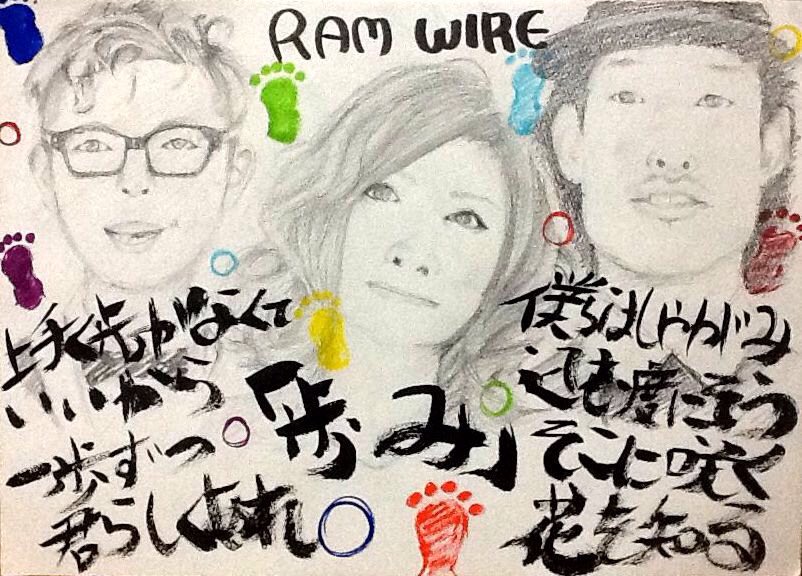 RAM WIRE
上手く歩かなくて
いいから
一歩ずつ
君らしくあれ
「歩み」
僕らはしゃがみ
込む度に
そこに咲く
花を知る